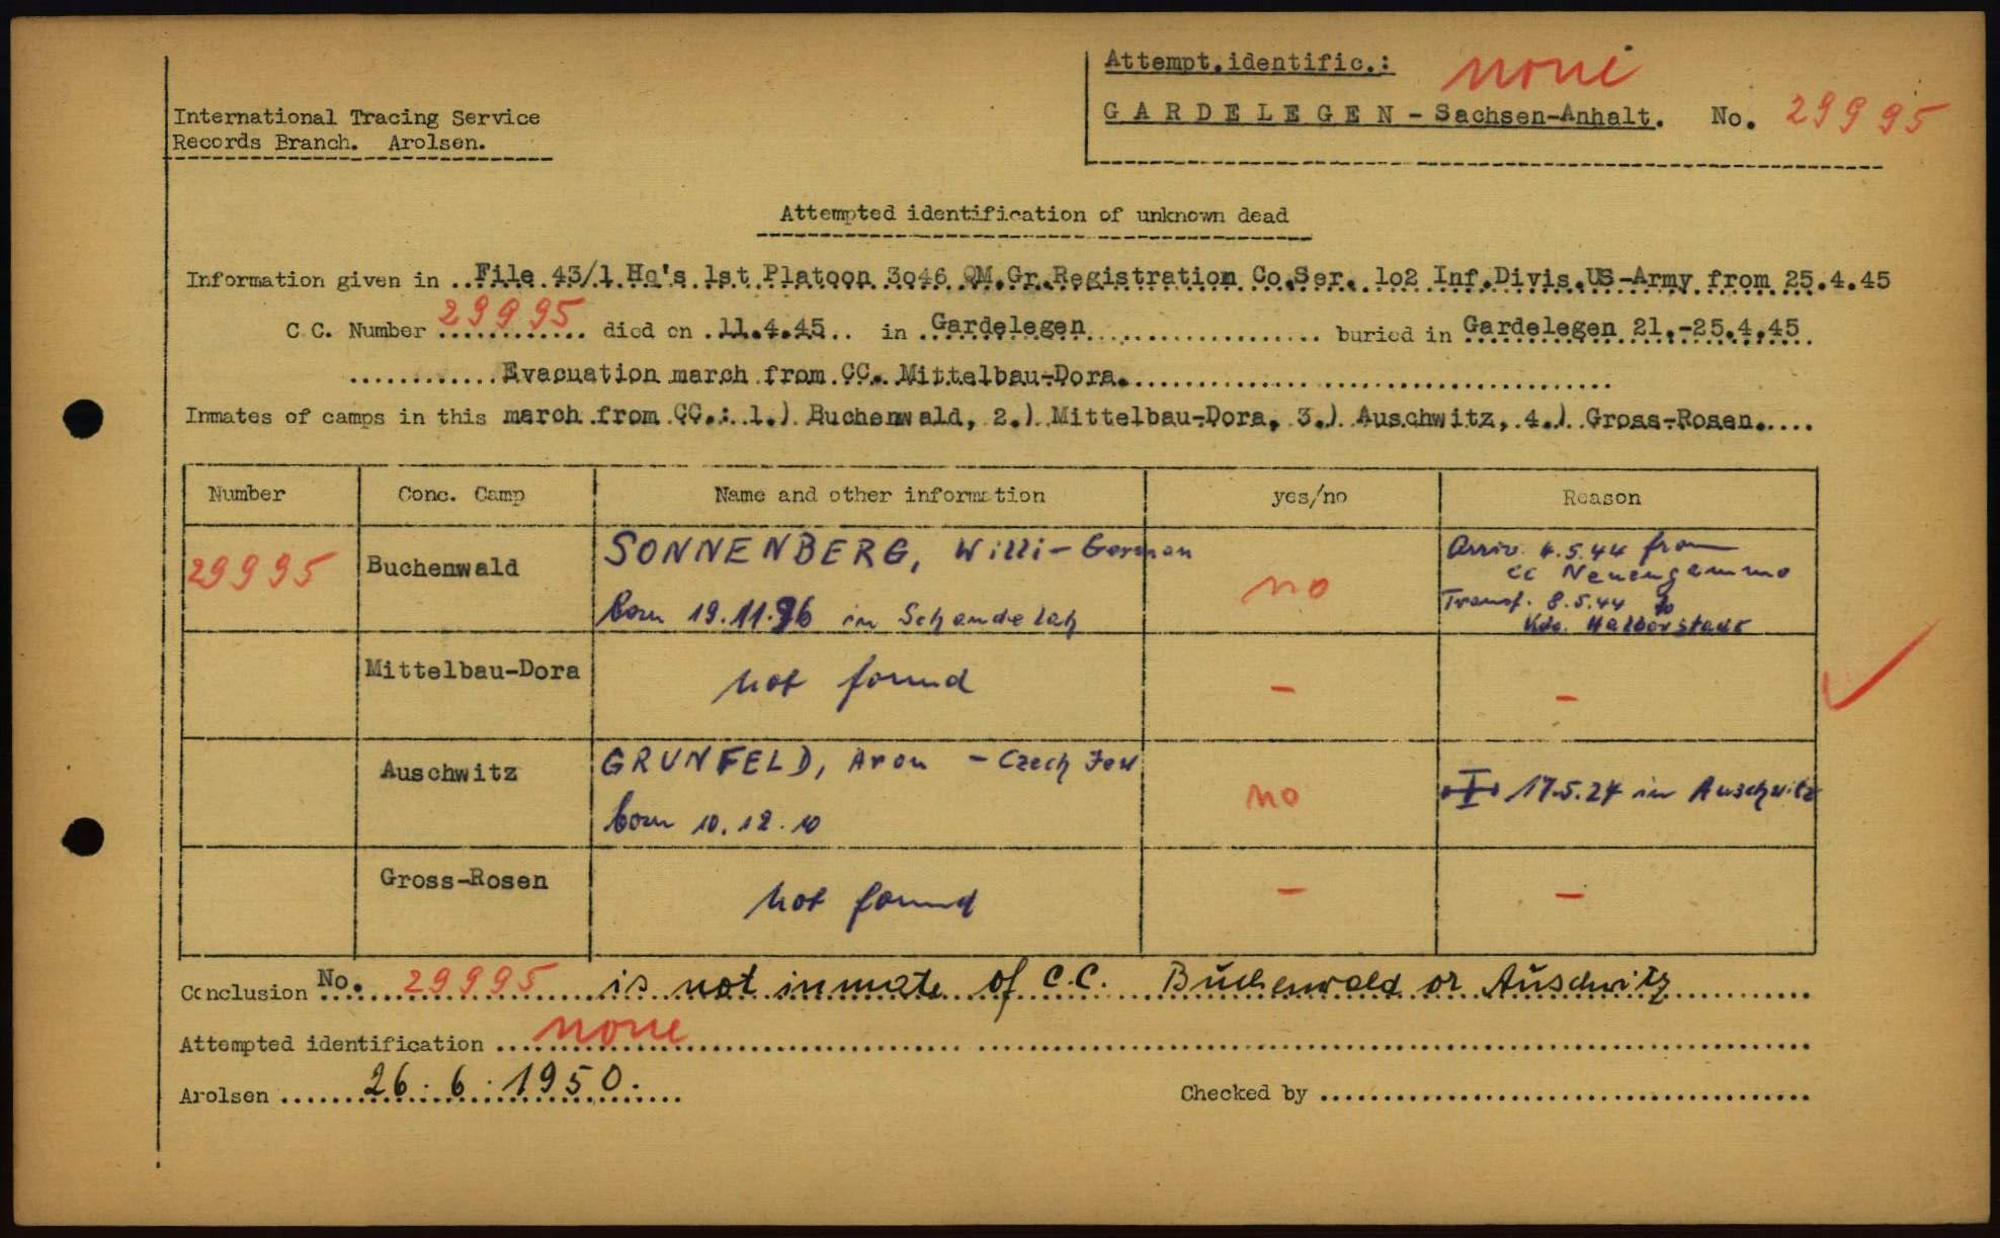 Attempt.identific.: none
International Tracing Service
Records Branch. Arolsen.
GARDELEGEN - Sachsen-Anhalt. No. 29995
Attempted identification of unknown dead
Information given in ..File 43/1 Hq's 1st Platoon 3o46 QM.Gr.Registration Co.Ser. 1o2 Inf.Divis.US-Army from 25.4.45
C.C. Number 29995 died on .11.4.45.. in .Gardelegen.................... buried in Gardelegen 21.-25.4.45
............Evacuation march from CC. Mittelbau-Dora.......................................
Inmates of camps in this march from CC.: 1.) Buchenwald, 2.) Mittelbau-Dora, 3.) Auschwitz, 4.) Gross-Rosen.....
Number Conc. Camp Name and other information yes/no Reason
29995 Buchenwald SONNENBERG, Willi - German
born 19.11.96 in Schandelah
no
Arriv. 4.5.44 from
cc Neuengamme
Transf. 8.5.44 to
Kdo. Halberstadt
Mittelbau-Dora not found - -
Auschwitz GRUNFELD, Aron - Czech Jew
born 10.12.10
no
17.5.24 in Auschwitz
Gross-Rosen not found - -
Conclusion No. 29995 is not inmate of C.C. Buchenwald or Auschwitz
Attempted identification none
Arolsen 26.6.1950.
Checked by .......................................